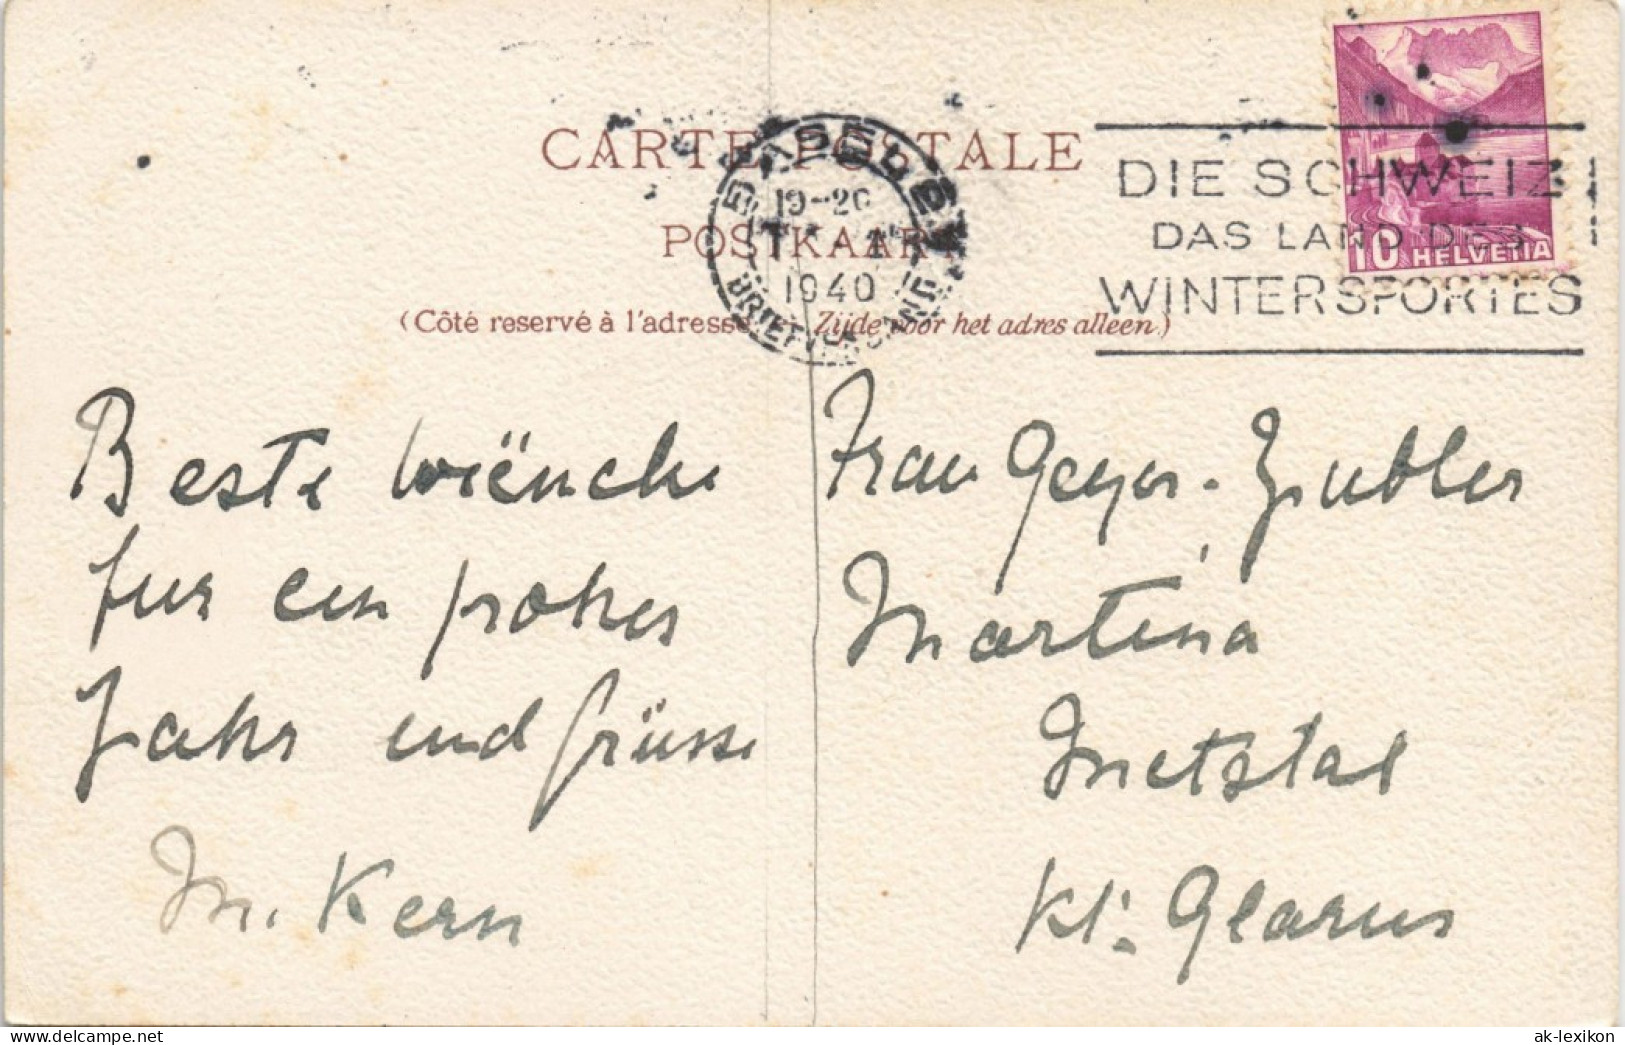 CARTE POSTALE
POSTKAART
(Côté reservé à l'adresse Zijde voor het adres alleen)
BASEL
19-20
1940
BRIEFVERSAND
DIE SCHWEIZ
DAS LAND DES
WINTERSPORTES
10 HELVETIA
Beste wüensche
fur ein frohes
Jahr und grüsse
M. Kern
Frau Geyer-Zubler
Martina
Netstal
Kt. Glarus
delcampe.net
ak-lexikon